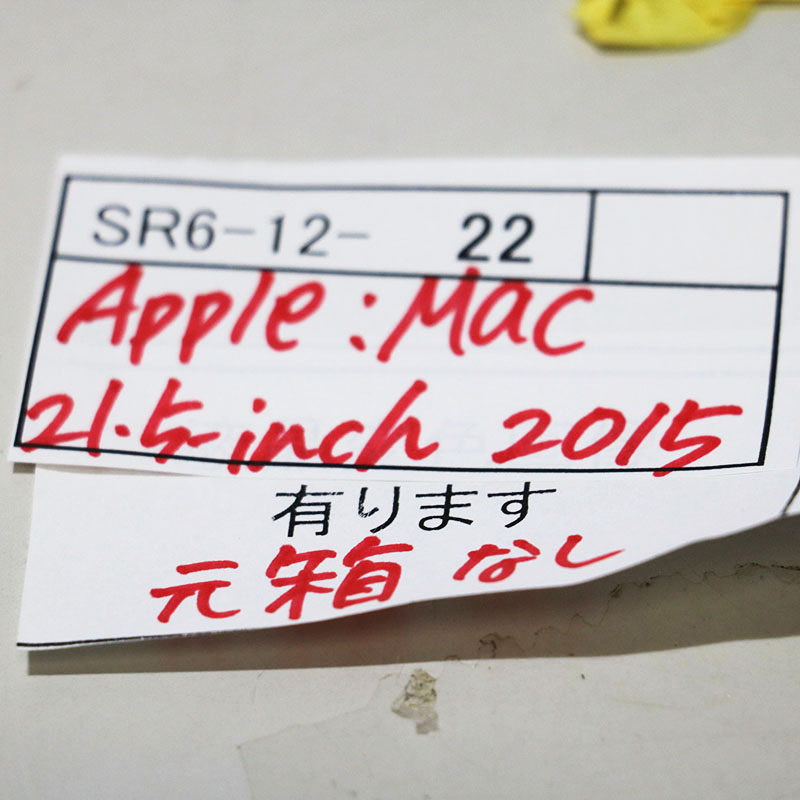 SR6-12- 22
Apple:Mac
21.5-inch 2015
有ります
元箱 なし